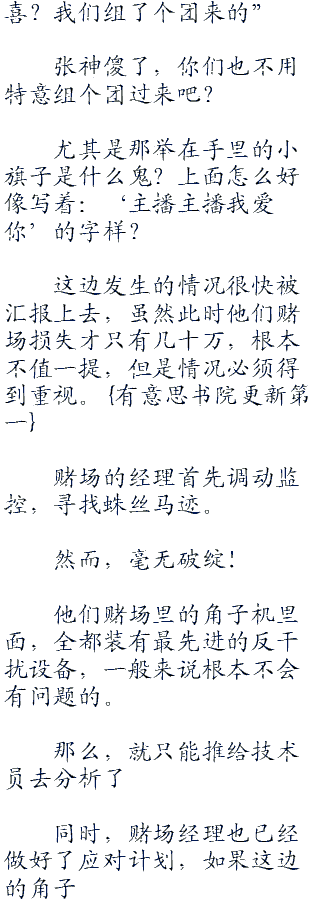 喜？我们组了个团来的”
张神傻了，你们也不用
特意组个团过来吧？
尤其是那举在手里的小
旗子是什么鬼？上面怎么好
像写着：‘主播主播我爱
你’的字样？
这边发生的情况很快被
汇报上去，虽然此时他们赌
场损失才只有几十万，根本
不值一提，但是情况必须得
到重视。{有意思书院更新第
一}
赌场的经理首先调动监
控，寻找蛛丝马迹。
然而，毫无破绽！
他们赌场里的角子机里
面，全都装有最先进的反干
扰设备，一般来说根本不会
有问题的。
那么，就只能推给技术
员去分析了
同时，赌场经理也已经
做好了应对计划，如果这边
的角子